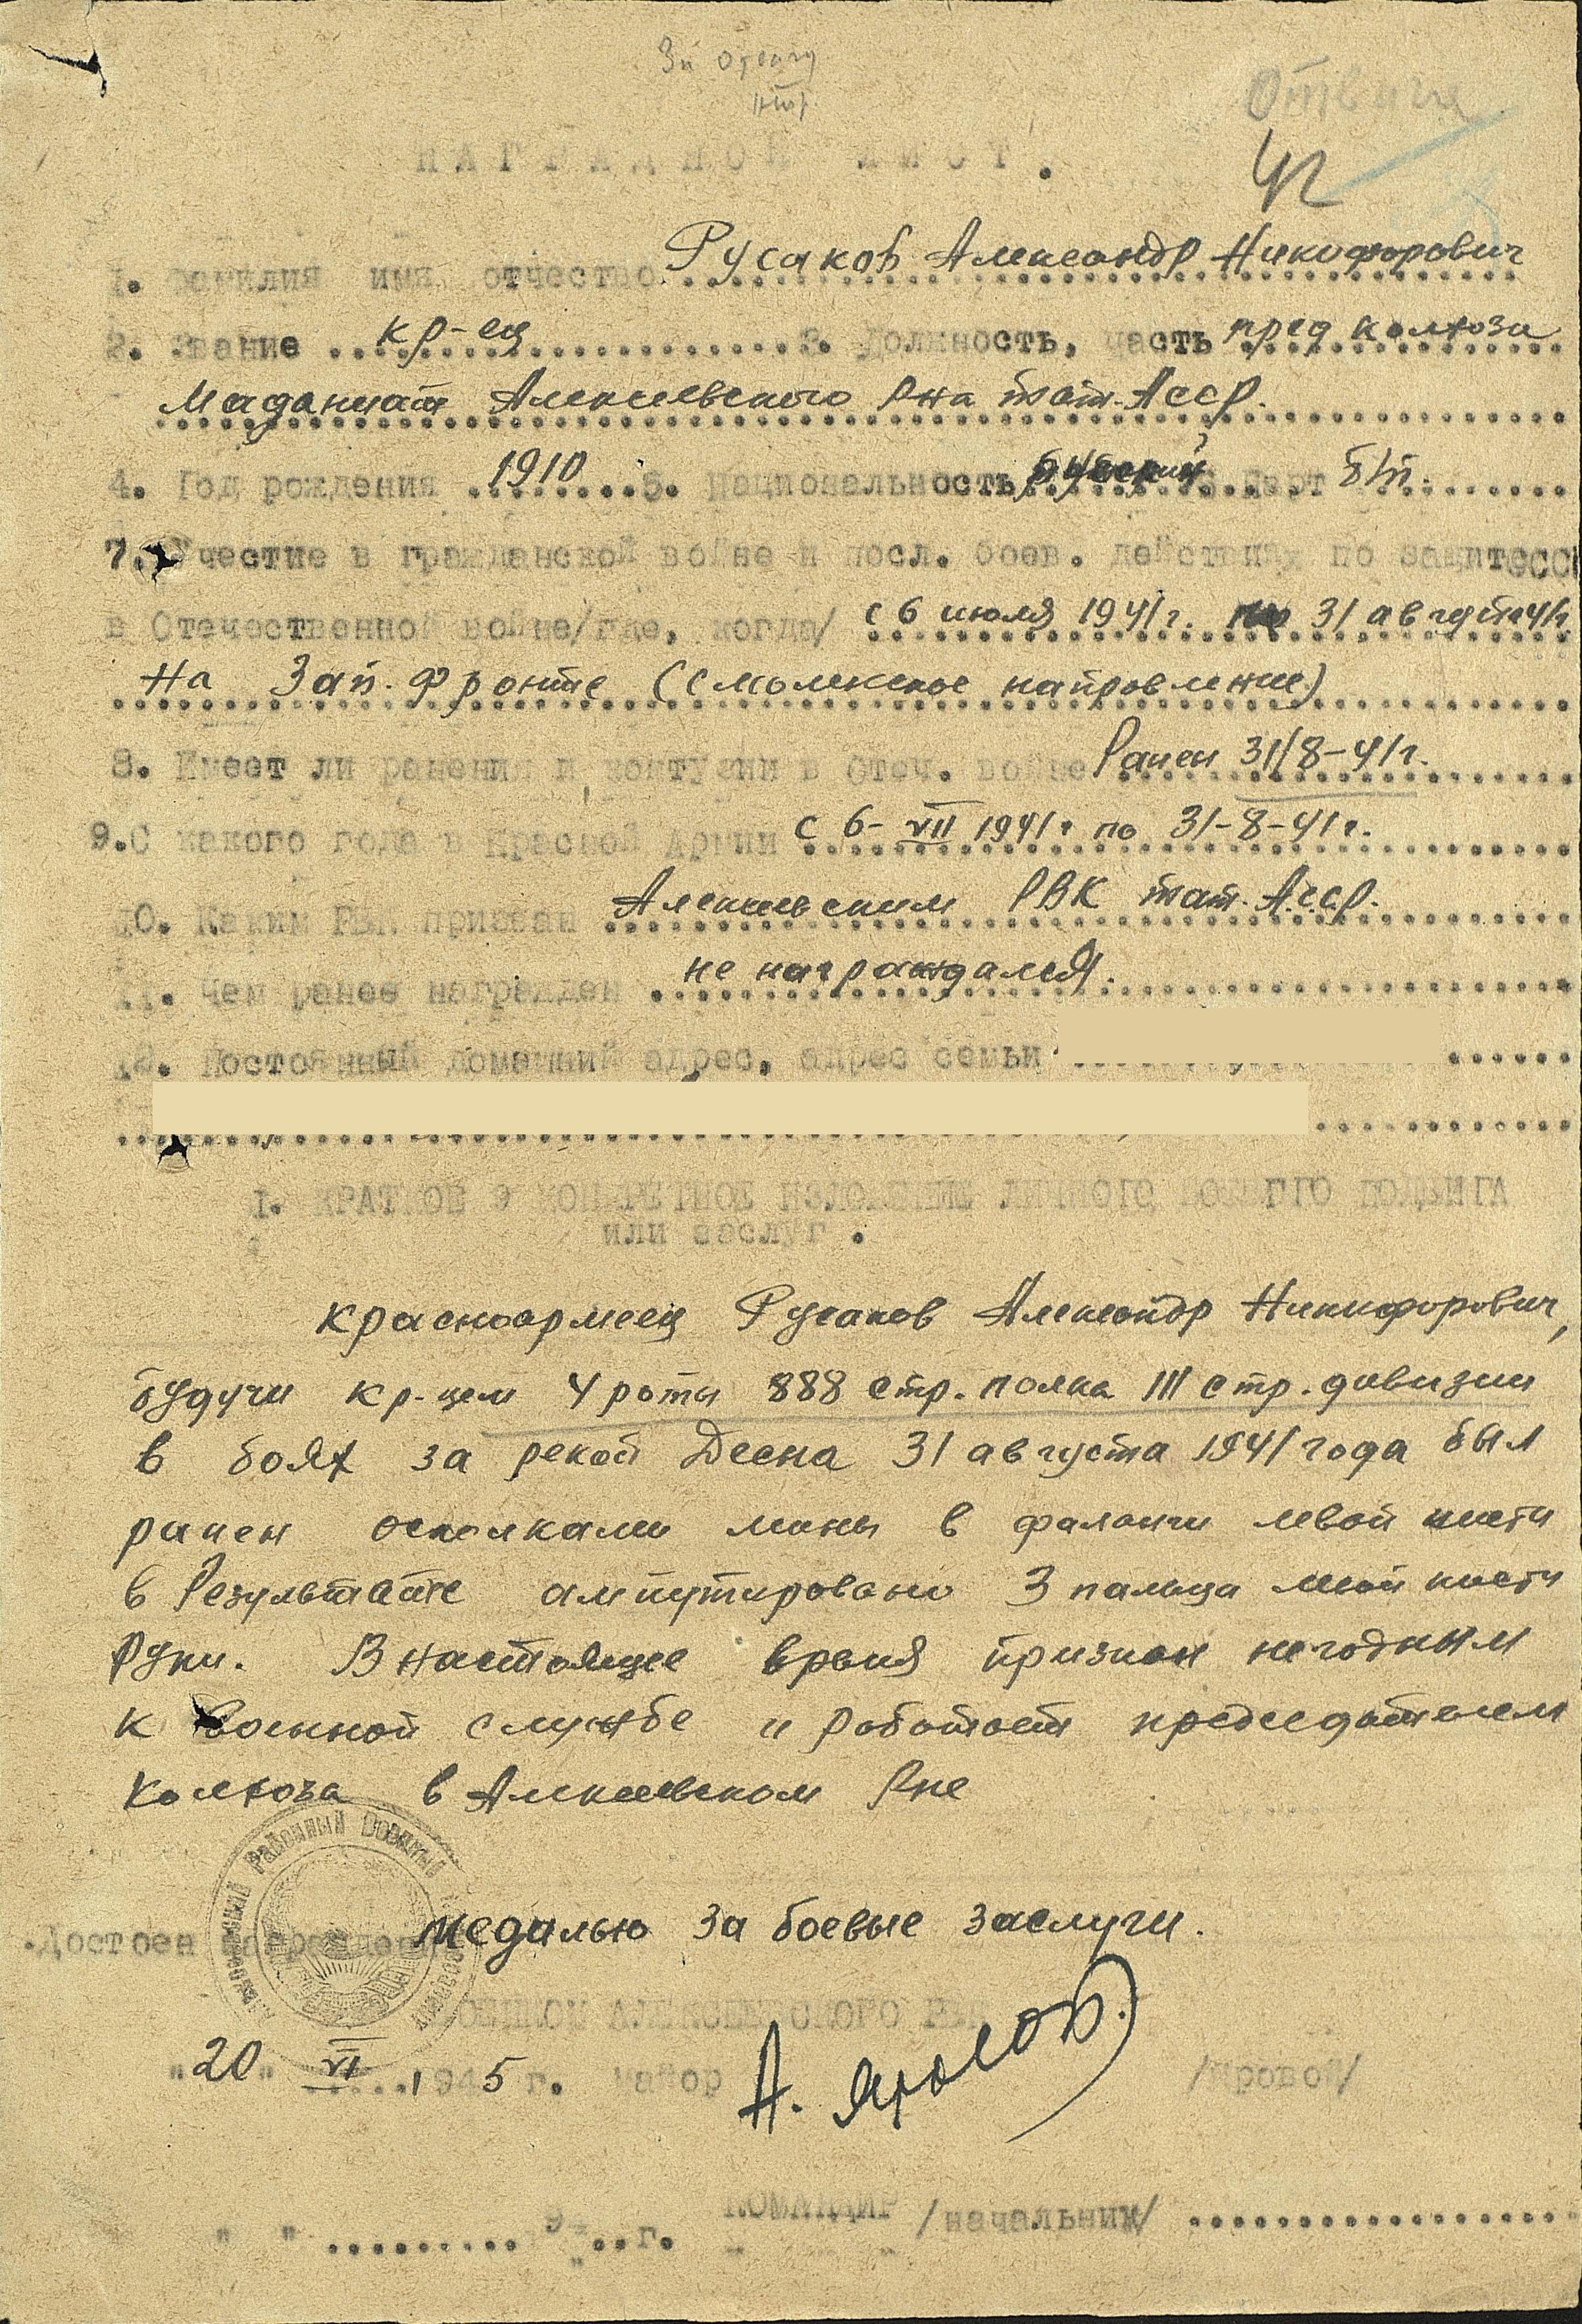 За отвагу
Отвага
42
НАГРАДНОЙ ЛИСТ.
1. Фамилия имя отчество Русаков Александр Никифорович
2. Звание кр-ец 3. Должность, часть пред колхоза
Маданиат Алексеевского Рна тат. Асср.
4. Год рождения 1910 5. Национальность русский 6. Парт б/п.
7. Участие в гражданской войне и посл. боев. действиях по защите ССС
в Отечественной войне/где, когда/ с 6 июля 1941 г. по 31 августа 41г
На Зап. Фронте (Смоленское направление)
8. Имеет ли ранения и контузии в Отеч. войне Ранен 31/8-41г.
9. С какого года в Красной Армии с 6-VII 1941г по 31-8-41г.
10. Каким РВК призван Алексеевским РВК тат. А.с.с.р.
11. Чем ранее награжден не награждался.
12. Постоянный домашний адрес, адрес семьи
I. КРАТКОЕ КОНКРЕТНОЕ ИЗЛОЖЕНИЕ ЛИЧНОГО БОЕВОГО ПОДВИГА
или заслуг.
Красноармеец Русаков Александр Никифорович,
будучи кр-цем 4 роты 888 стр. полка 111 стр. дивизии
в боях за рекой Десна 31 августа 1941 года был
ранен осколками мины в фаланги левой кисти
в Результате ампутировано 3 пальца левой кисти
Руки. В настоящее время признан негодным
к военной службе и работает председателем
колхоза в Алексеевском Рне
Достоен награждения медалью за боевые заслуги.
ВОЕНКОМ АЛЕКСЕЕВСКОГО РВК
"20" VI 1945 г. майор /Яровой/
" " 9 г. КОМАНДИР /начальник/